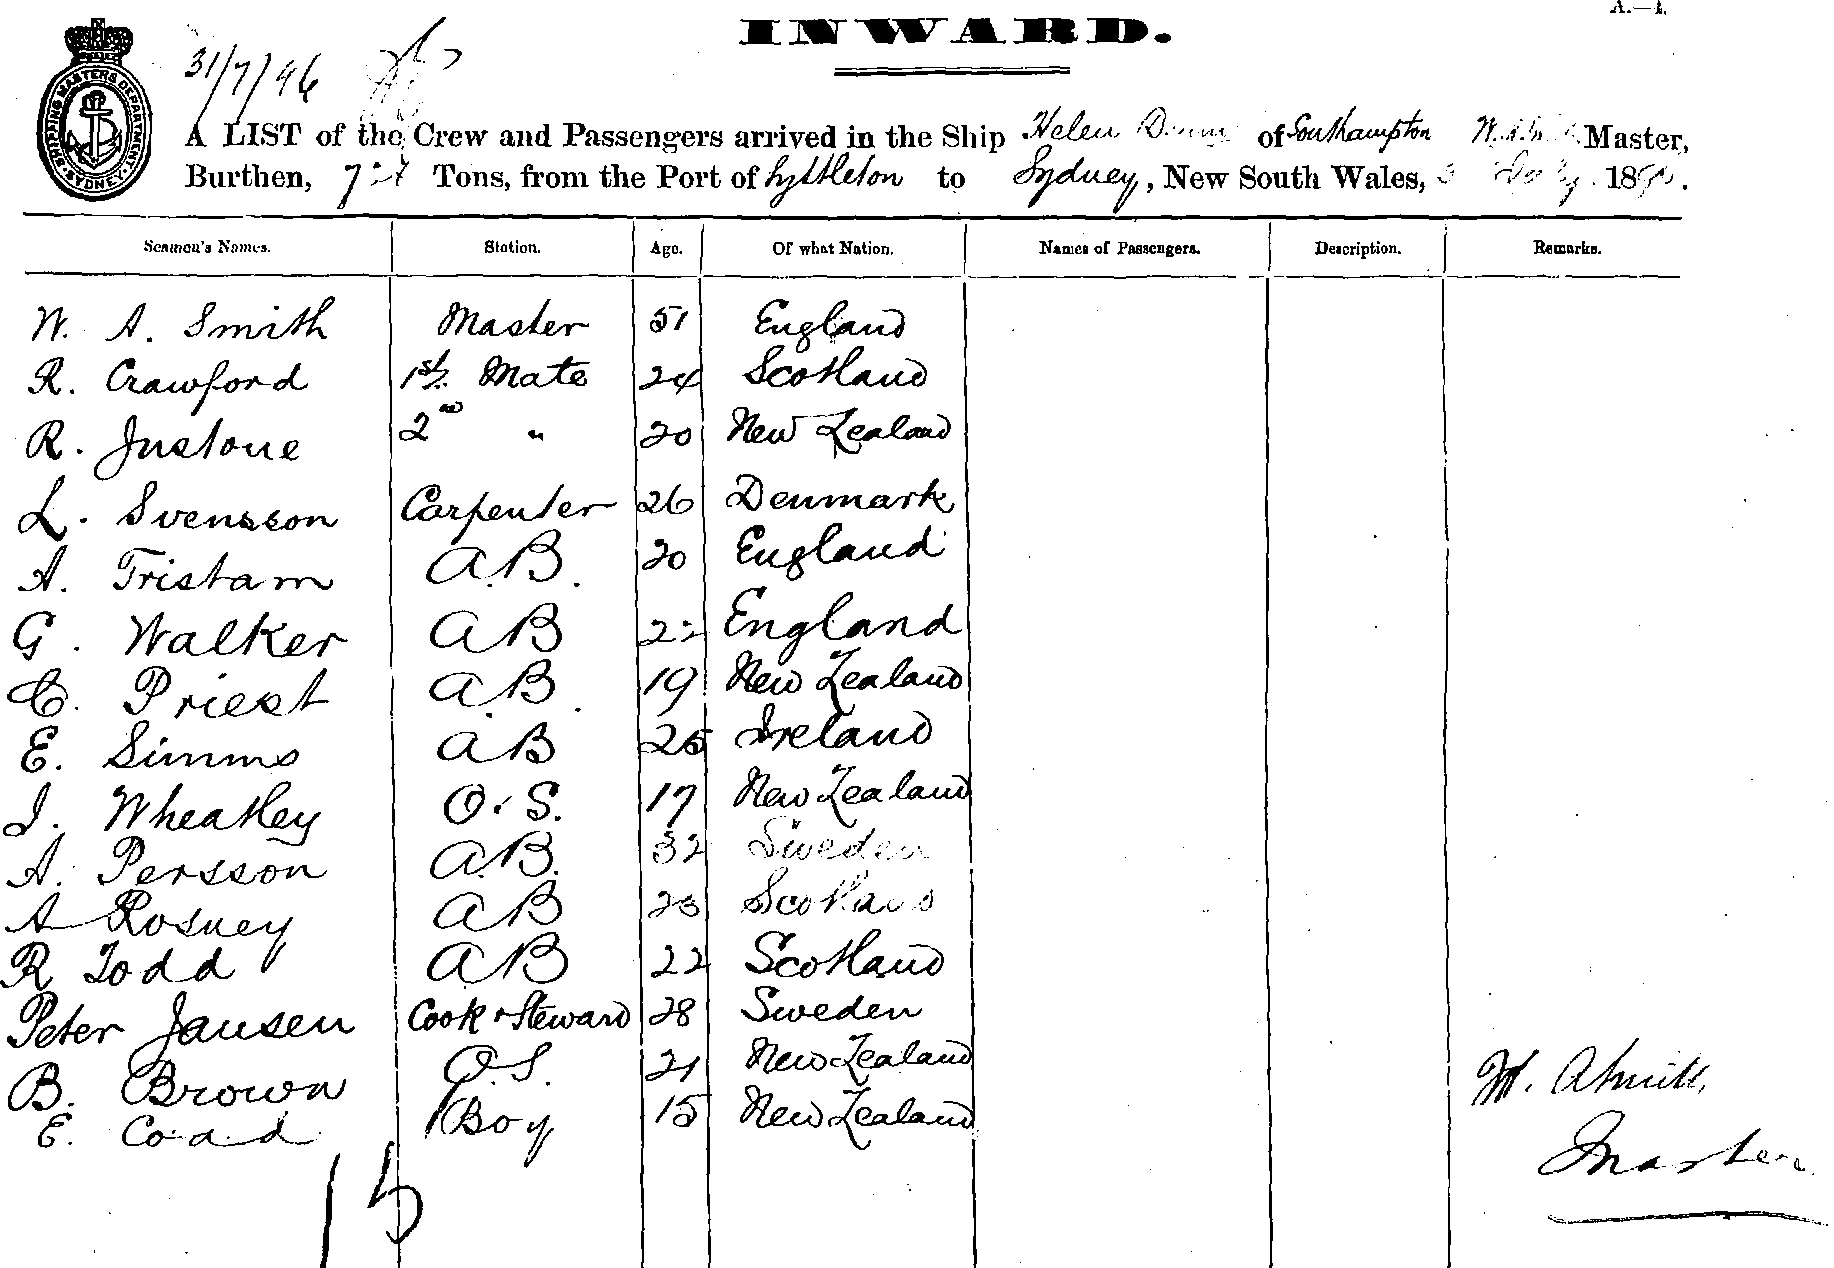 A.—1.
INWARD.
SHIPPING MASTERS DEPARTMENT SYDNEY
31/7/96
A LIST of the Crew and Passengers arrived in the Ship Helen Denny of Southampton Master,
Burthen, Tons, from the Port of Lyttleton to Sydney, New South Wales, July 189 .
Seamen's Names. Station. Age. Of what Nation. Names of Passengers. Description. Remarks.
W. A. Smith Master 51 England
R. Crawford 1st. Mate 24 Scotland
R. Justone 2nd " 20 New Zealand
L. Svensson Carpenter 26 Denmark
A. Tristam A.B. 20 England
G. Walker AB 22 England
C. Priest A.B. 19 New Zealand
E. Simms AB 25 Ireland
J. Wheatley O.S. 17 New Zealand
A. Persson A.B. 32 Sweden
A Rosney AB Scotland
R Todd AB 22 Scotland
Peter Jansen Cook & Steward 28 Sweden
B. Brown O.S. 21 New Zealand
E. Coad Boy 15 New Zealand
W. A Smith
Master
15